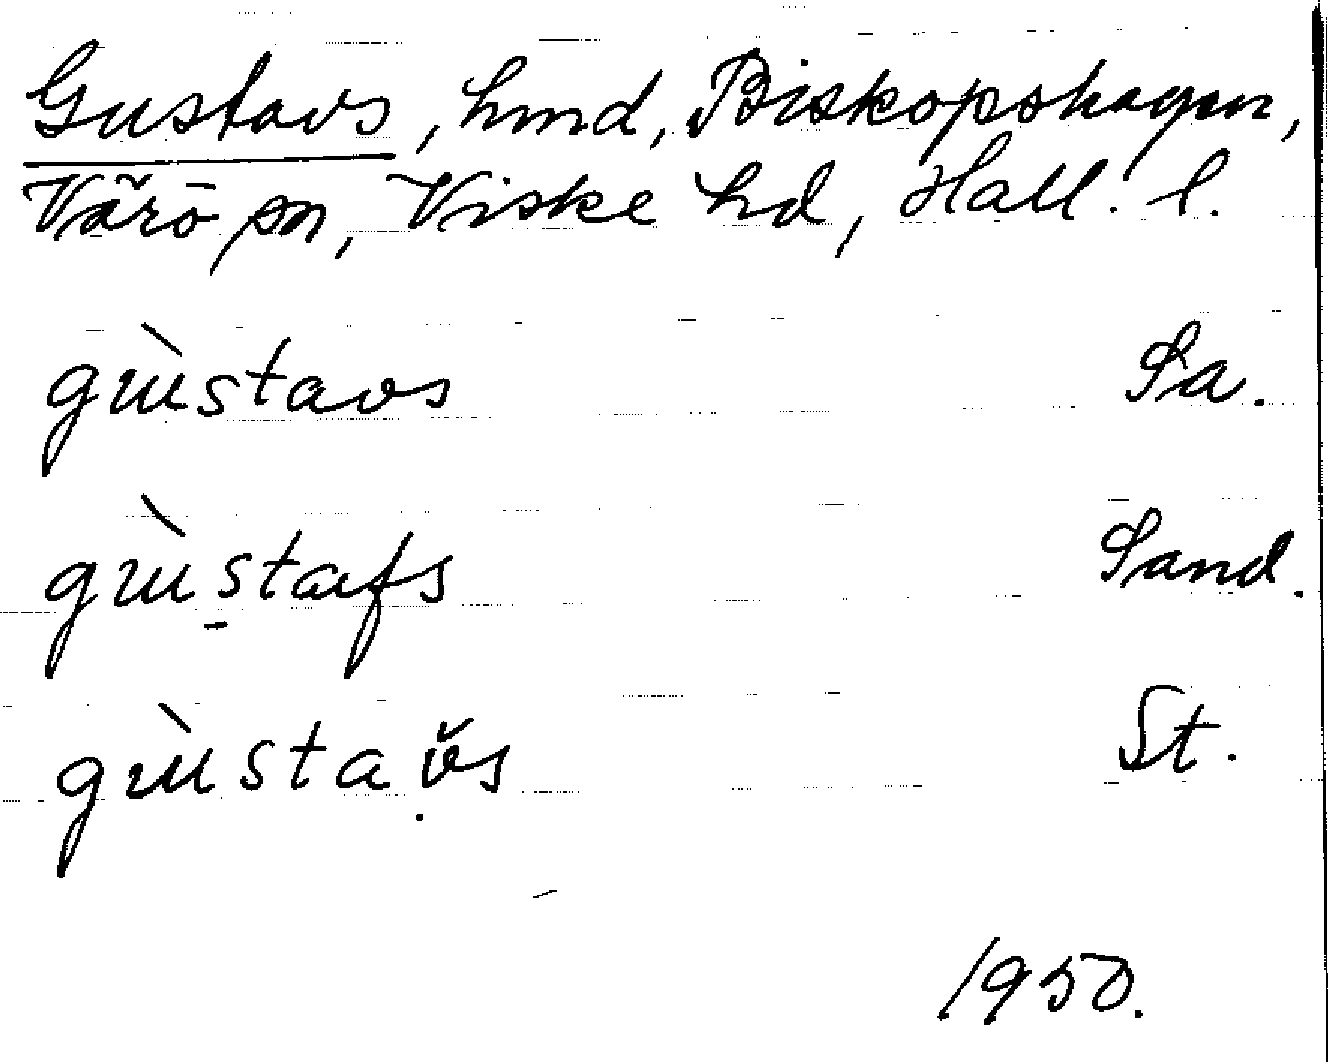 Gustavs, hmd, Biskopshagen,
Värö sn, Viske hd, Hall. l.
gùstavs Sa.
gùstafs Sand.
gùstav̌s St.
1950.